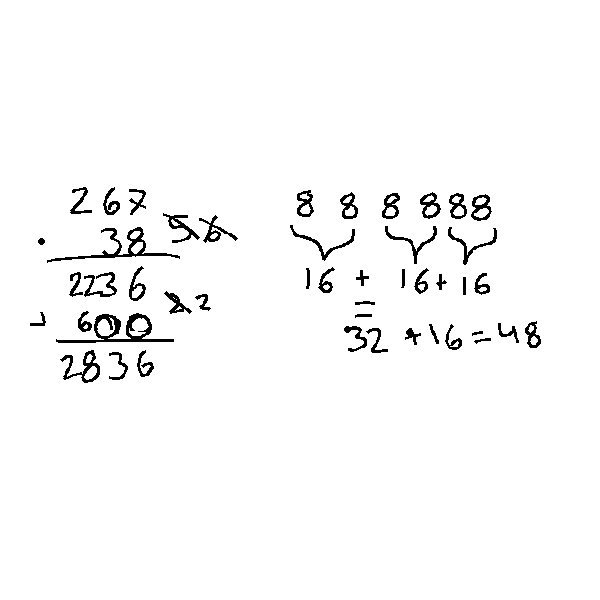 267
· 38 56
2236
+ 600 2 2
2836
8 8 8 8 8 8
16 + 16 + 16
=
32 + 16 = 48